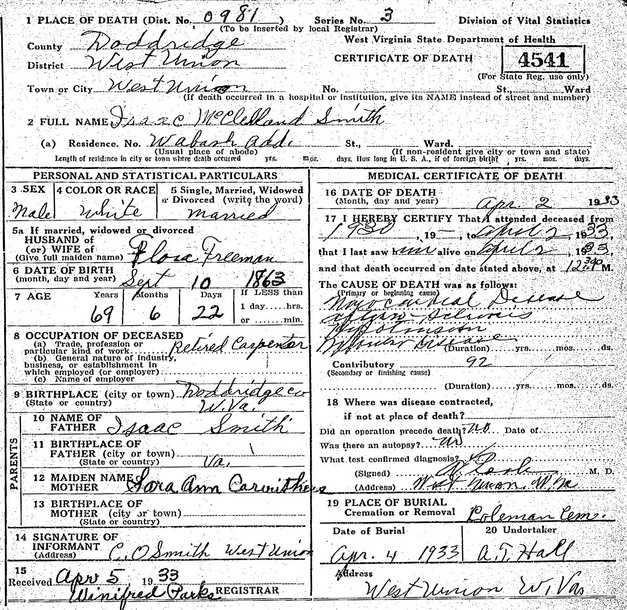 1 PLACE OF DEATH (Dist. No. 0981) Series No. 3 Division of Vital Statistics
(To be inserted by local Registrar)
County Doddridge West Virginia State Department of Health
District West Union CERTIFICATE OF DEATH 4541
(For State Reg. use only)
Town or City West Union No. St., Ward
(If death occurred in a hospital or institution, give its NAME instead of street and number)
2 FULL NAME Isaac McClelland Smith
(a) Residence. No. Wabash Add. St., Ward.
(Usual place of abode) (If non-resident give city or town and state)
Length of residence in city or town where death occurred yrs. mos. days. How long in U. S. A., if of foreign birth? yrs. mos. days.
PERSONAL AND STATISTICAL PARTICULARS
3 SEX 4 COLOR OR RACE 5 Single, Married, Widowed
or Divorced (write the word)
Male White married
5a If married, widowed or divorced
HUSBAND of
(or) WIFE of
(Give full maiden name) Flosa Freeman
6 DATE OF BIRTH
(month, day and year) Sept 10 1863
7 AGE Years Months Days If LESS than
1 day....hrs.
or ....min.
69 6 22
8 OCCUPATION OF DECEASED
(a) Trade, profession or
particular kind of work Retired Carpenter
(b) General nature of industry,
business, or establishment in
which employed (or employer)
(c) Name of employer
9 BIRTHPLACE (city or town) Doddridge Co
(State or country) W. Va.
PARENTS
10 NAME OF
FATHER Isaac Smith
11 BIRTHPLACE OF
FATHER (city or town)
(State or country) Va.
12 MAIDEN NAME
MOTHER Sara Ann Carwithers
13 BIRTHPLACE OF
MOTHER (city or town)
(State or country)
14 SIGNATURE OF
INFORMANT
(Address) C. O Smith West Union
15
Received Apr 5 1933
Winifred Parks REGISTRAR
MEDICAL CERTIFICATE OF DEATH
16 DATE OF DEATH
(Month, day and year) Apr. 2 1933
17 I HEREBY CERTIFY That I attended deceased from
1930, 19—, to April 2, 1933,
that I last saw him alive on April 2, 1933,
and that death occurred on date stated above, at M.
The CAUSE OF DEATH was as follows:
(Primary or beginning cause)
Myocardial Disease
Disease
(Duration) yrs. mos. ds.
Contributory 92
(Secondary or finishing cause)
(Duration) yrs. mos. ds.
18 Where was disease contracted,
if not at place of death?
Did an operation precede death? No Date of
Was there an autopsy? no
What test confirmed diagnosis?
(Signed) M. D.
(Address) West Union W. Va
19 PLACE OF BURIAL
Cremation or Removal Coleman Cem.
Date of Burial 20 Undertaker
Apr. 4 1933 A. T. Hall
Address
West Union W. Va